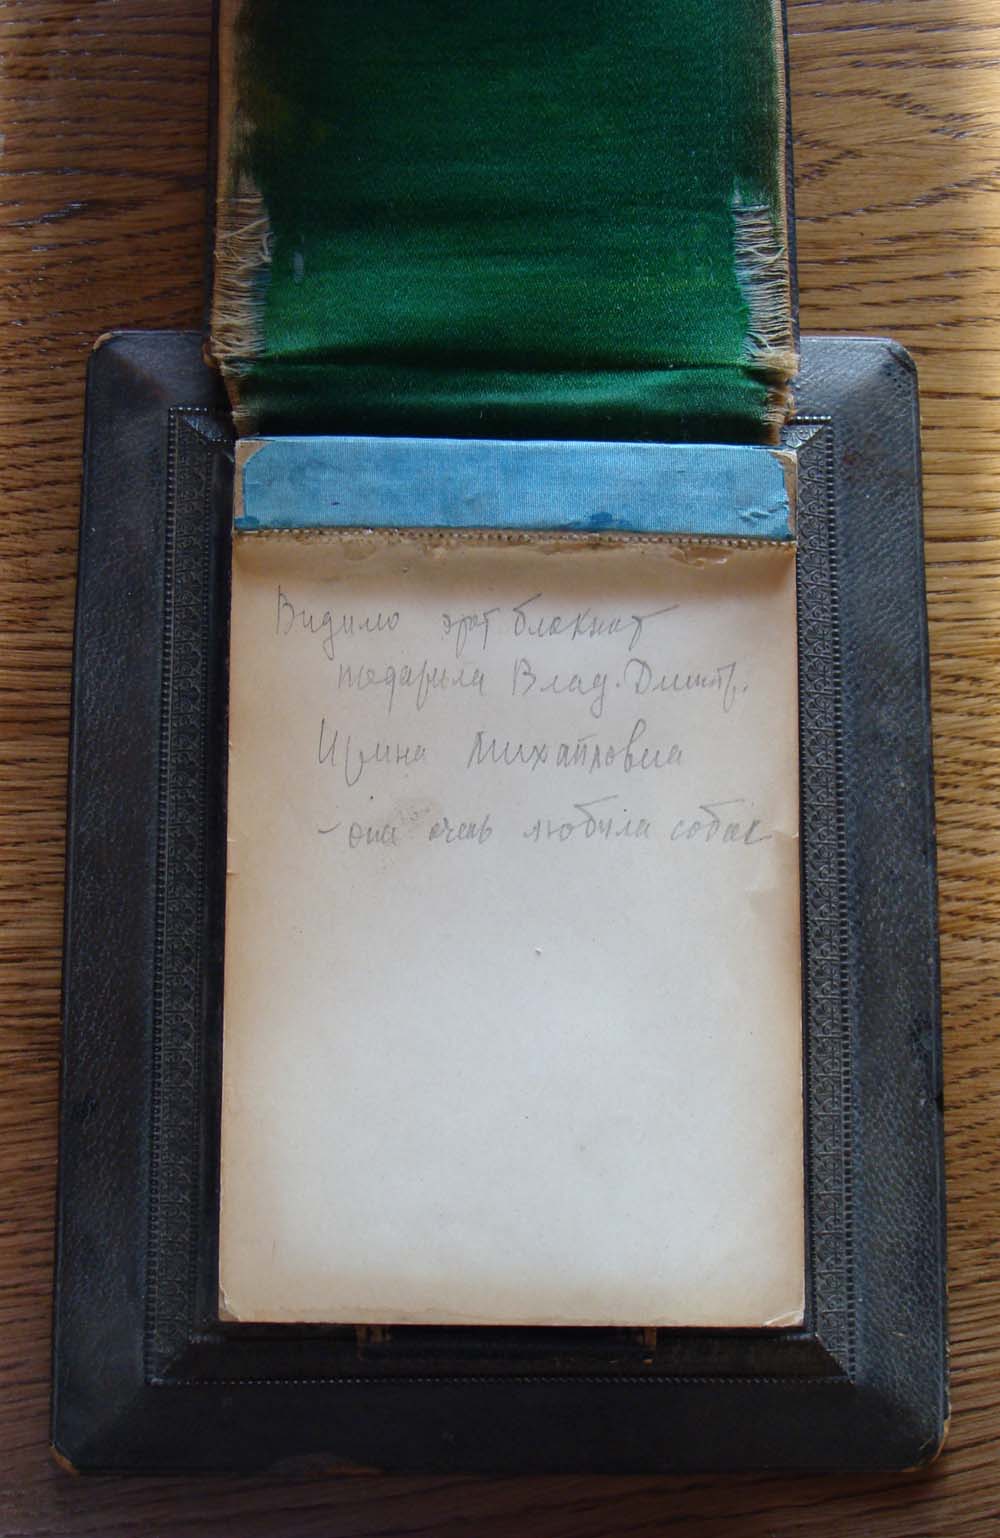 Видимо этот блокнот
подарила Влад. Дмитр.
Ирина Михайловна
- она очень любила собак